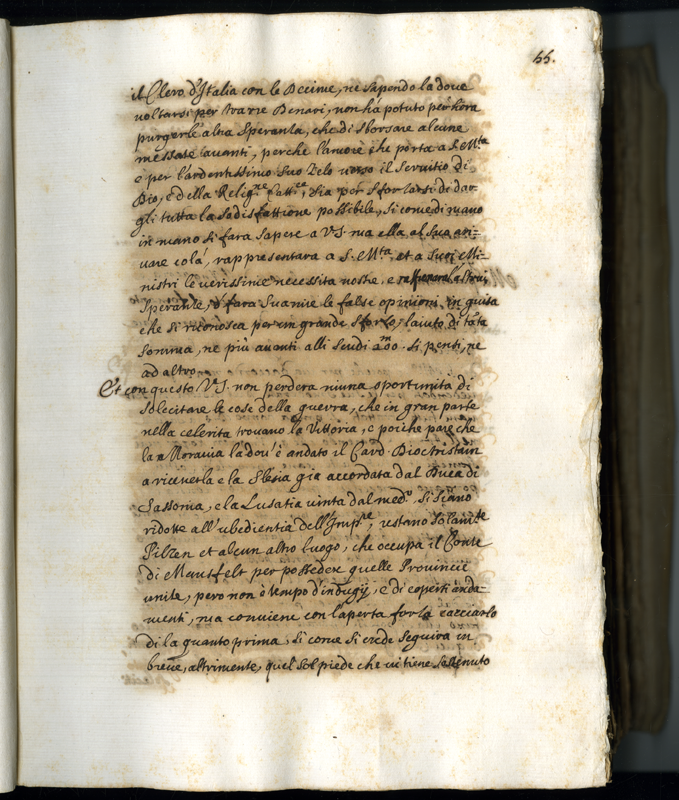 55.
il Clero d'Italia con le Decime, ne sapendo la doue
voltarsi per trarre Denari, non hà potuto per hora
porgerle altra speranza, che di sborsare alcune
messate auanti, perche l'amore che porta a S. M.ta
e per l'ardentissimo suo Zelo verso il Seruitio di
Dio, e della Relig.ne Catt.ca, stà per sforzarsi di dar-
gli tutta la sadisfattione possibile, si come di mano
in mano si fara sapere a V.S. ma ella al suo arri-
uare colá, rappresentara a S. M.ta et a suoi Mi-
nistri le verissime necessita nostre, e
Speranze, fara suanire le false opinioni, in guisa
che si riconosca per un grande sforzo, l'aiuto di tãta
somma, ne più auanti alli scudi 200.m si penti, ne
ad altro
Et con questo V.S. non perdera niuna oportunita di
solecitare le cose della guerra, che in gran parte
nella celerita trouano la Vittoria, e poiche pare che
la Morauia la dou' è andato il Card. Dioctristain
a riceuerla e la Slesia gia accordata dal Duca di
Sassonia, e la Lusatia uinta dal med.o si siano
ridotte all'ubedientia dell'Imp.re, restano solam.te
Pilzen et alcun altro luogo, che occupa il Conte
di Mansfelt per possedere quelle Prouincie
unite, pero non è tempo d'indugij, e di coperti anda-
menti, ma conuiene con l'aperta forza cacciarlo
di la quanto prima, si come si crede seguira in
breue, altrimente, quel sol piede che ui tiene sostenuto